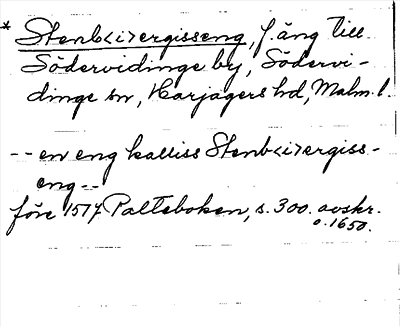 * Stenb<i>ergisseng, f. äng till
Södervidinge by, Södervi-
dinge sn, Harjagers hd, Malm. l.
-- en eng kalliss Stenb<i>ergiss-
eng --
före 1517 Palteboken, s. 300. avskr.
o. 1650.